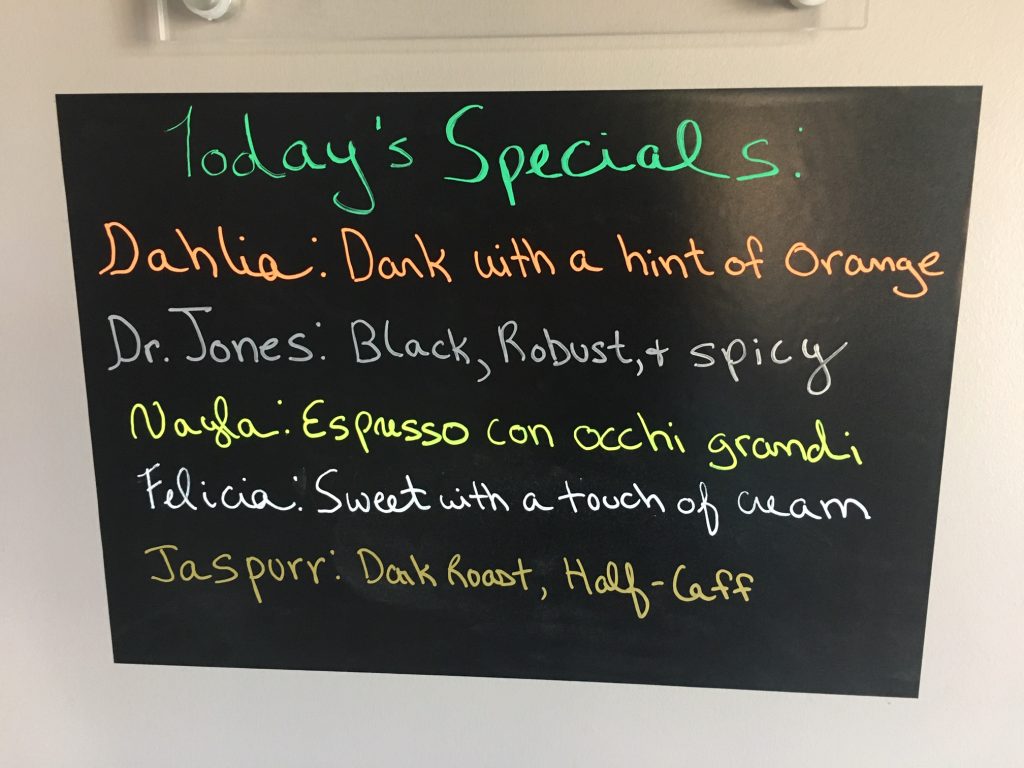 Today's Specials:
Dahlia: Dark with a hint of Orange
Dr. Jones: Black, Robust, + spicy
Nayla: Espresso con occhi grandi
Felicia: Sweet with a touch of cream
Jaspurr: Dark Roast, Half-Caff